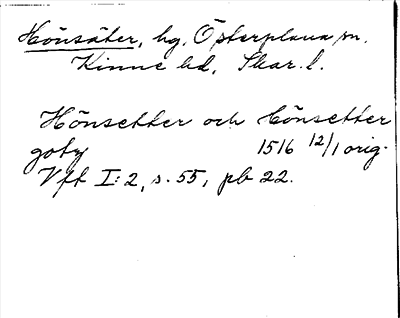 Hönsäter, hg. Österplana sn.
Kinne hd, Skar. l.
Hönsetther och Hönsetther
gotz 1516 12/1 orig.
Vft I:2, s. 55, pb 22.